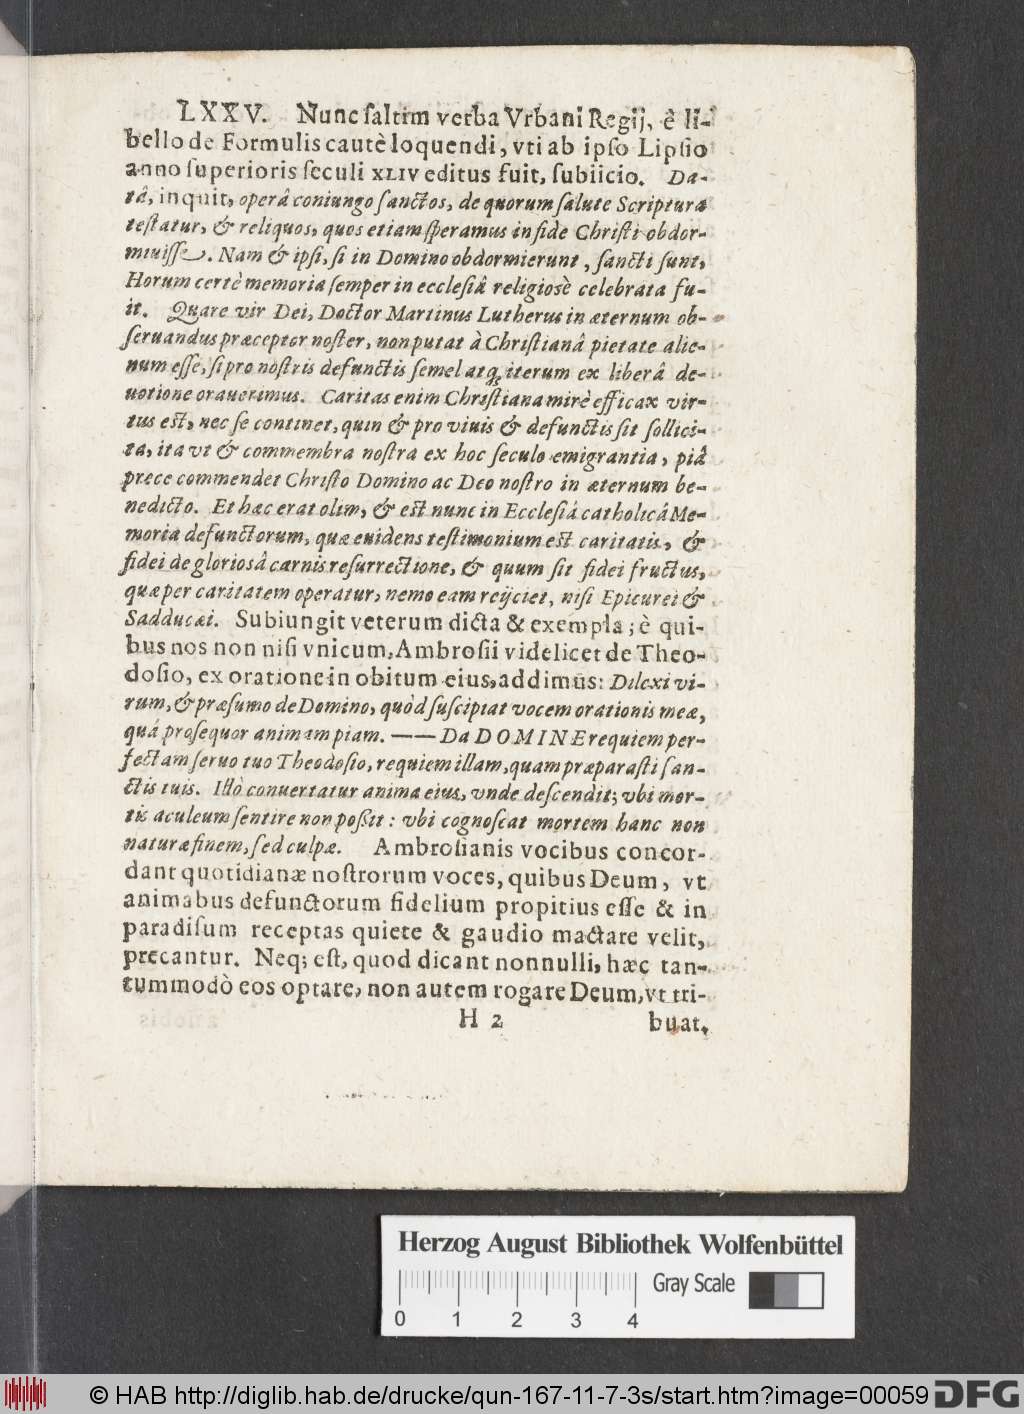 LXXV. Nunc ſaltim verba Vrbani Regij, è li-
bello de Formulis cautè loquendi, vti ab ipſo Lipſio
anno ſuperioris ſeculi XLIV editus fuit, ſubiicio. Da-
tâ, inquit, operâ coniungo ſanctos, de quorum ſalute Scriptura
teſtatur, & reliquos, quos etiam ſperamus in fide Chriſti obdor-
miuiſſe. Nam & ipſi, ſi in Domino obdormierunt, ſancti ſunt,
Horum certè memoria ſemper in eccleſiâ religiosè celebrata fu-
it. Quare vir Dei, Doctor Martinus Lutherus in æternum ob-
ſeruandus præceptor noſter, non putat à Chriſtianâ pietate alie-
num eſſe, ſi pro noſtris defunctis ſemel atq; iterum ex liberâ de-
uotione orauerimus. Caritas enim Chriſtiana mirè efficax vir-
tus eſt, nec ſe continet, quin & pro viuis & defunctis ſit ſollici-
ta, ita vt & commembra noſtra ex hoc ſeculo emigrantia, piâ
prece commendet Chriſto Domino ac Deo noſtro in æternum be-
nedicto. Et hæc erat olim, & eſt nunc in Eccleſiâ catholicâ Me-
moria defunctorum, quæ euidens teſtimonium eſt caritatis, &
fidei de glorioſâ carnis reſurrectione, & quum ſit fidei fructus,
quæ per caritatem operatur, nemo eam reijciet, niſi Epicurei &
Sadducæi. Subiungit veterum dicta & exempla; è qui-
bus nos non niſi vnicum, Ambroſii videlicet de Theo-
doſio, ex oratione in obitum eius, addimus: Dilexi vi-
rum, & præſumo de Domino, quòd ſuſcipiat vocem orationis meæ,
quá proſequor animam piam. —— Da DOMINE requiem per-
fectam ſeruo tuo Theodoſio, requiem illam, quam præparaſti ſan-
ctis tuis. Illò conuertatur anima eius, vnde deſcendit; vbi mor-
tis aculeum ſentire non poßit: vbi cognoſcat mortem hanc non
naturæ finem, ſed culpæ. Ambroſianis vocibus concor-
dant quotidianæ noſtrorum voces, quibus Deum, vt
animabus defunctorum fidelium propitius eſſe & in
paradiſum receptas quiete & gaudio mactare velit,
precantur. Neq; eſt, quod dicant nonnulli, hæc tan-
tummodò eos optare, non autem rogare Deum, vt tri-
H 2 buat,
Herzog August Bibliothek Wolfenbüttel
Gray Scale
0 1 2 3 4
© HAB http://diglib.hab.de/drucke/qun-167-11-7-3s/start.htm?image=00059 DFG